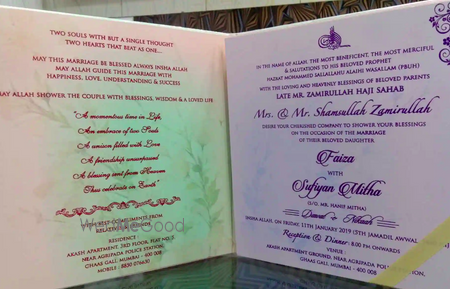 TWO SOULS WITH BUT A SINGLE THOUGHT
TWO HEARTS THAT BEAT AS ONE...
MAY THIS MARRIAGE BE BLESSED ALWAYS INSHA ALLAH
MAY ALLAH GUIDE THIS MARRIAGE WITH
HAPPINESS, LOVE, UNDERSTANDING & SUCCESS
MAY ALLAH SHOWER THE COUPLE WITH BLESSINGS, WISDOM & A LOVED LIFE
"A momentous time in Life,
An embrace of two Souls
A unison filled with Love
A friendship unsurpassed
A blessing sent from Heaven
Thus celebrate on Earth"
WITH BEST COMPLIMENTS FROM
RELATIVES
RESIDENCE
AKASH APARTMENT, 3RD FLOOR, FLAT NO.
NEAR AGRIPADA POLICE STATION,
GHAAS GALI, MUMBAI - 400 008
MOBILE : 8850 076630
WedMeGood
IN THE NAME OF ALLAH, THE MOST BENEFICENT, THE MOST MERCIFUL
& SALUTATIONS TO HIS BELOVED PROPHET
HAZRAT MOHAMMED SALLALLAHU ALAIHI WASALLAM (PBUH)
WITH THE LOVING AND HEAVENLY BLESSINGS OF BELOVED PARENTS
LATE MR. ZAMIRULLAH HAJI SAHAB
Mrs. & Mr. Shamsullah Zamirullah
DESIRE YOUR CHERISHED COMPANY TO SHOWER YOUR BLESSINGS
ON THE OCCASION OF THE MARRIAGE
OF THEIR BELOVED DAUGHTER
Faiza
WITH
Sufiyan Mitha
(S/O. MR. HANIF MITHA)
INSHA ALLAH, ON FRIDAY, 11TH JANUARY 2019 (5TH JAMADIL AWWAL
Reception & Dinner : 8.00 PM ONWARDS
AKASH APARTMENT, GROUND
NEAR AGRIPADA POLICE STATION,
GHAAS GALI, MUMBAI - 400 008